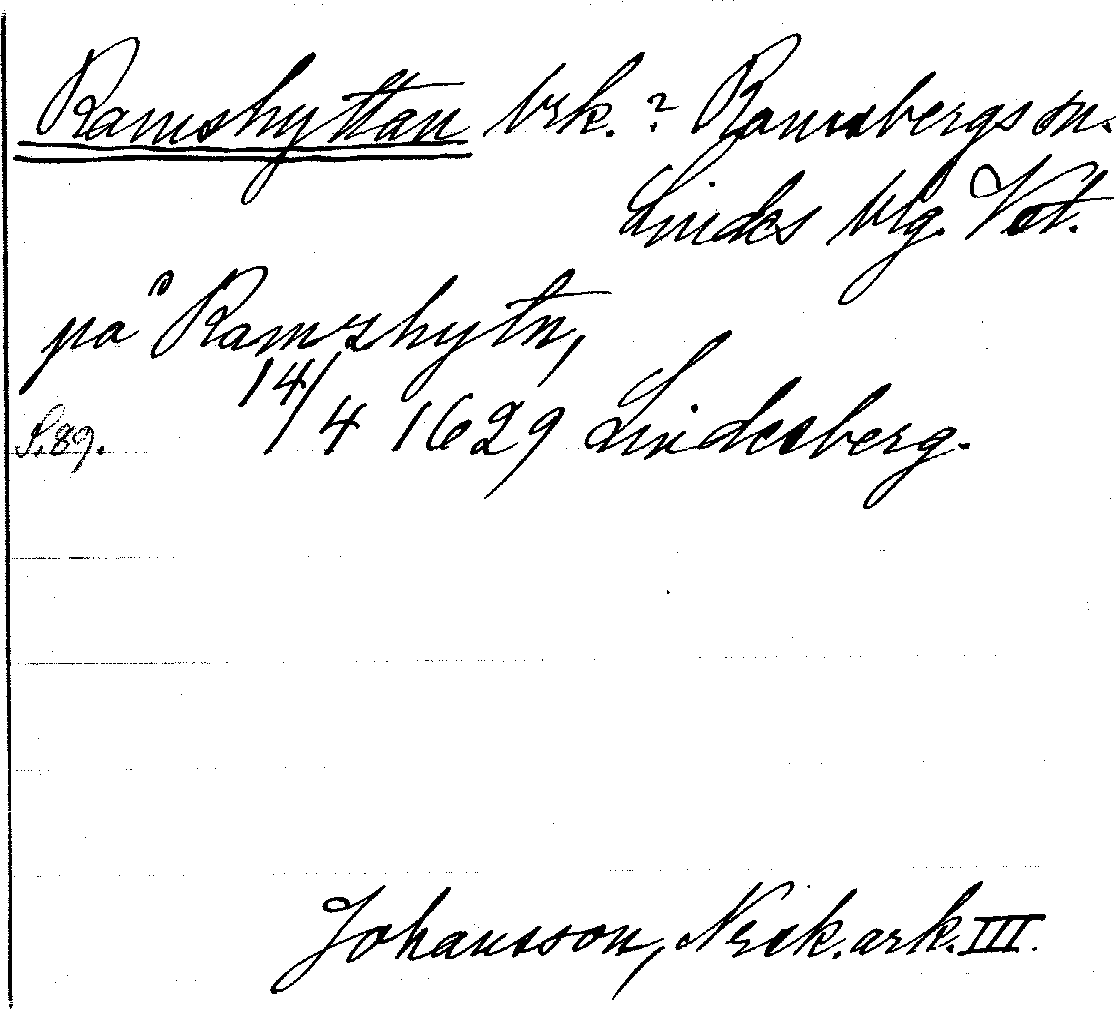 Ramshyttan brk.? Ramsbergs sn.
Lindes blg. Vstl.
på Ramshytn,
14/4 1629 Lindesberg.
S. 89.
Johansson, Nerik. ark. III.